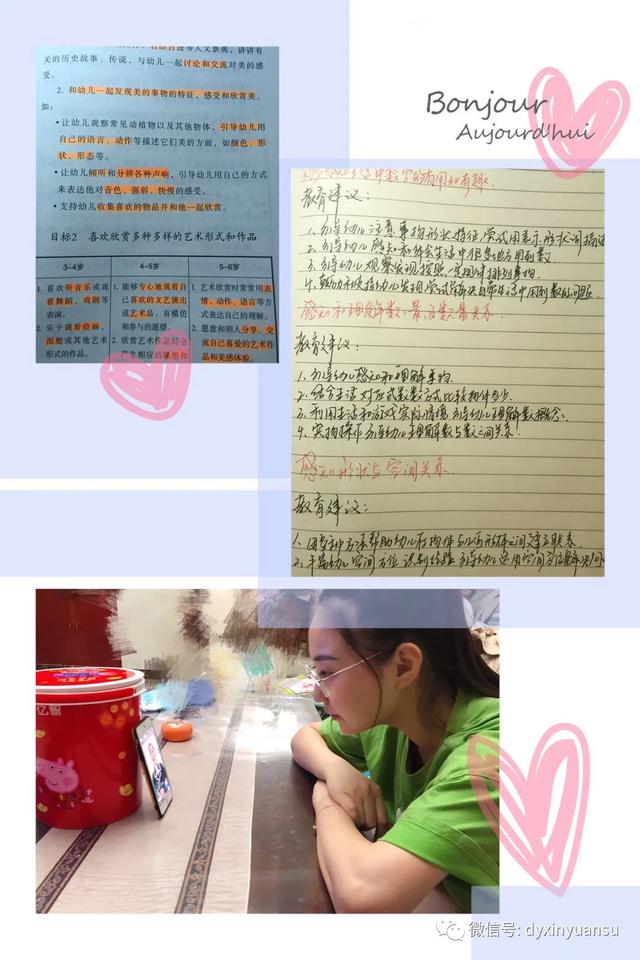 Bonjour
Aujourd'hui
人文景观，讲讲有
关的历史故事、传说，与幼儿一起讨论和交流对美的感
受。
2. 和幼儿一起发现美的事物的特征，感受和欣赏美。
如：
•让幼儿观察常见动植物以及其他物体，引导幼儿用
自己的语言、动作等描述它们美的方面，如颜色、形
状、形态等。
•让幼儿倾听和分辨各种声响，引导幼儿用自己的方式
来表达他对音色、强弱、快慢的感受。
•支持幼儿收集喜欢的物品并和他一起欣赏。
目标2 喜欢欣赏多种多样的艺术形式和作品
3-4岁 4-5岁 5-6岁
1. 喜欢听音乐或观
看舞蹈、戏剧等
表演。
2. 乐于观看绘画、
泥塑或其他艺术
形式的作品。
1. 能够专心地观看自
己喜欢的文艺演出
或艺术品，有模仿
和参与的愿望。
2. 欣赏艺术作品时会
产生相应的联想和
1. 艺术欣赏时常常用表
情、动作、语言等方
式表达自己的理解。
2. 愿意和别人分享、交
流自己喜爱的艺术作
品和美感体验。
中数学的有用和有趣.
教育建议：
1. 引导幼儿注意事物形状特征,尝试用表示形状词描述
2. 引导幼儿感知和体会生活中很多地方用到数
3. 引导幼儿观察发现按照一定规律排列事物.
4. 鼓励和支持幼儿发现尝试解决日常生活中用到数的问题.
感知和理解数、量及数量关系.
教育建议：
1. 引导幼儿感知和理解事物.
2. 结合生活对应或数数方式比较物体多少.
3. 利用生活和游戏实际情境引导幼儿理解数概念.
4. 实物操作引导幼儿理解数与数之间关系.
感知形状与空间关系
教育建议：
1. 用多种方法帮助幼儿在物体与几何形体之间建立联系
2. 丰富幼儿空间方位识别经验引导幼儿运用空间方位解决问
微信号: dyxinyuansu